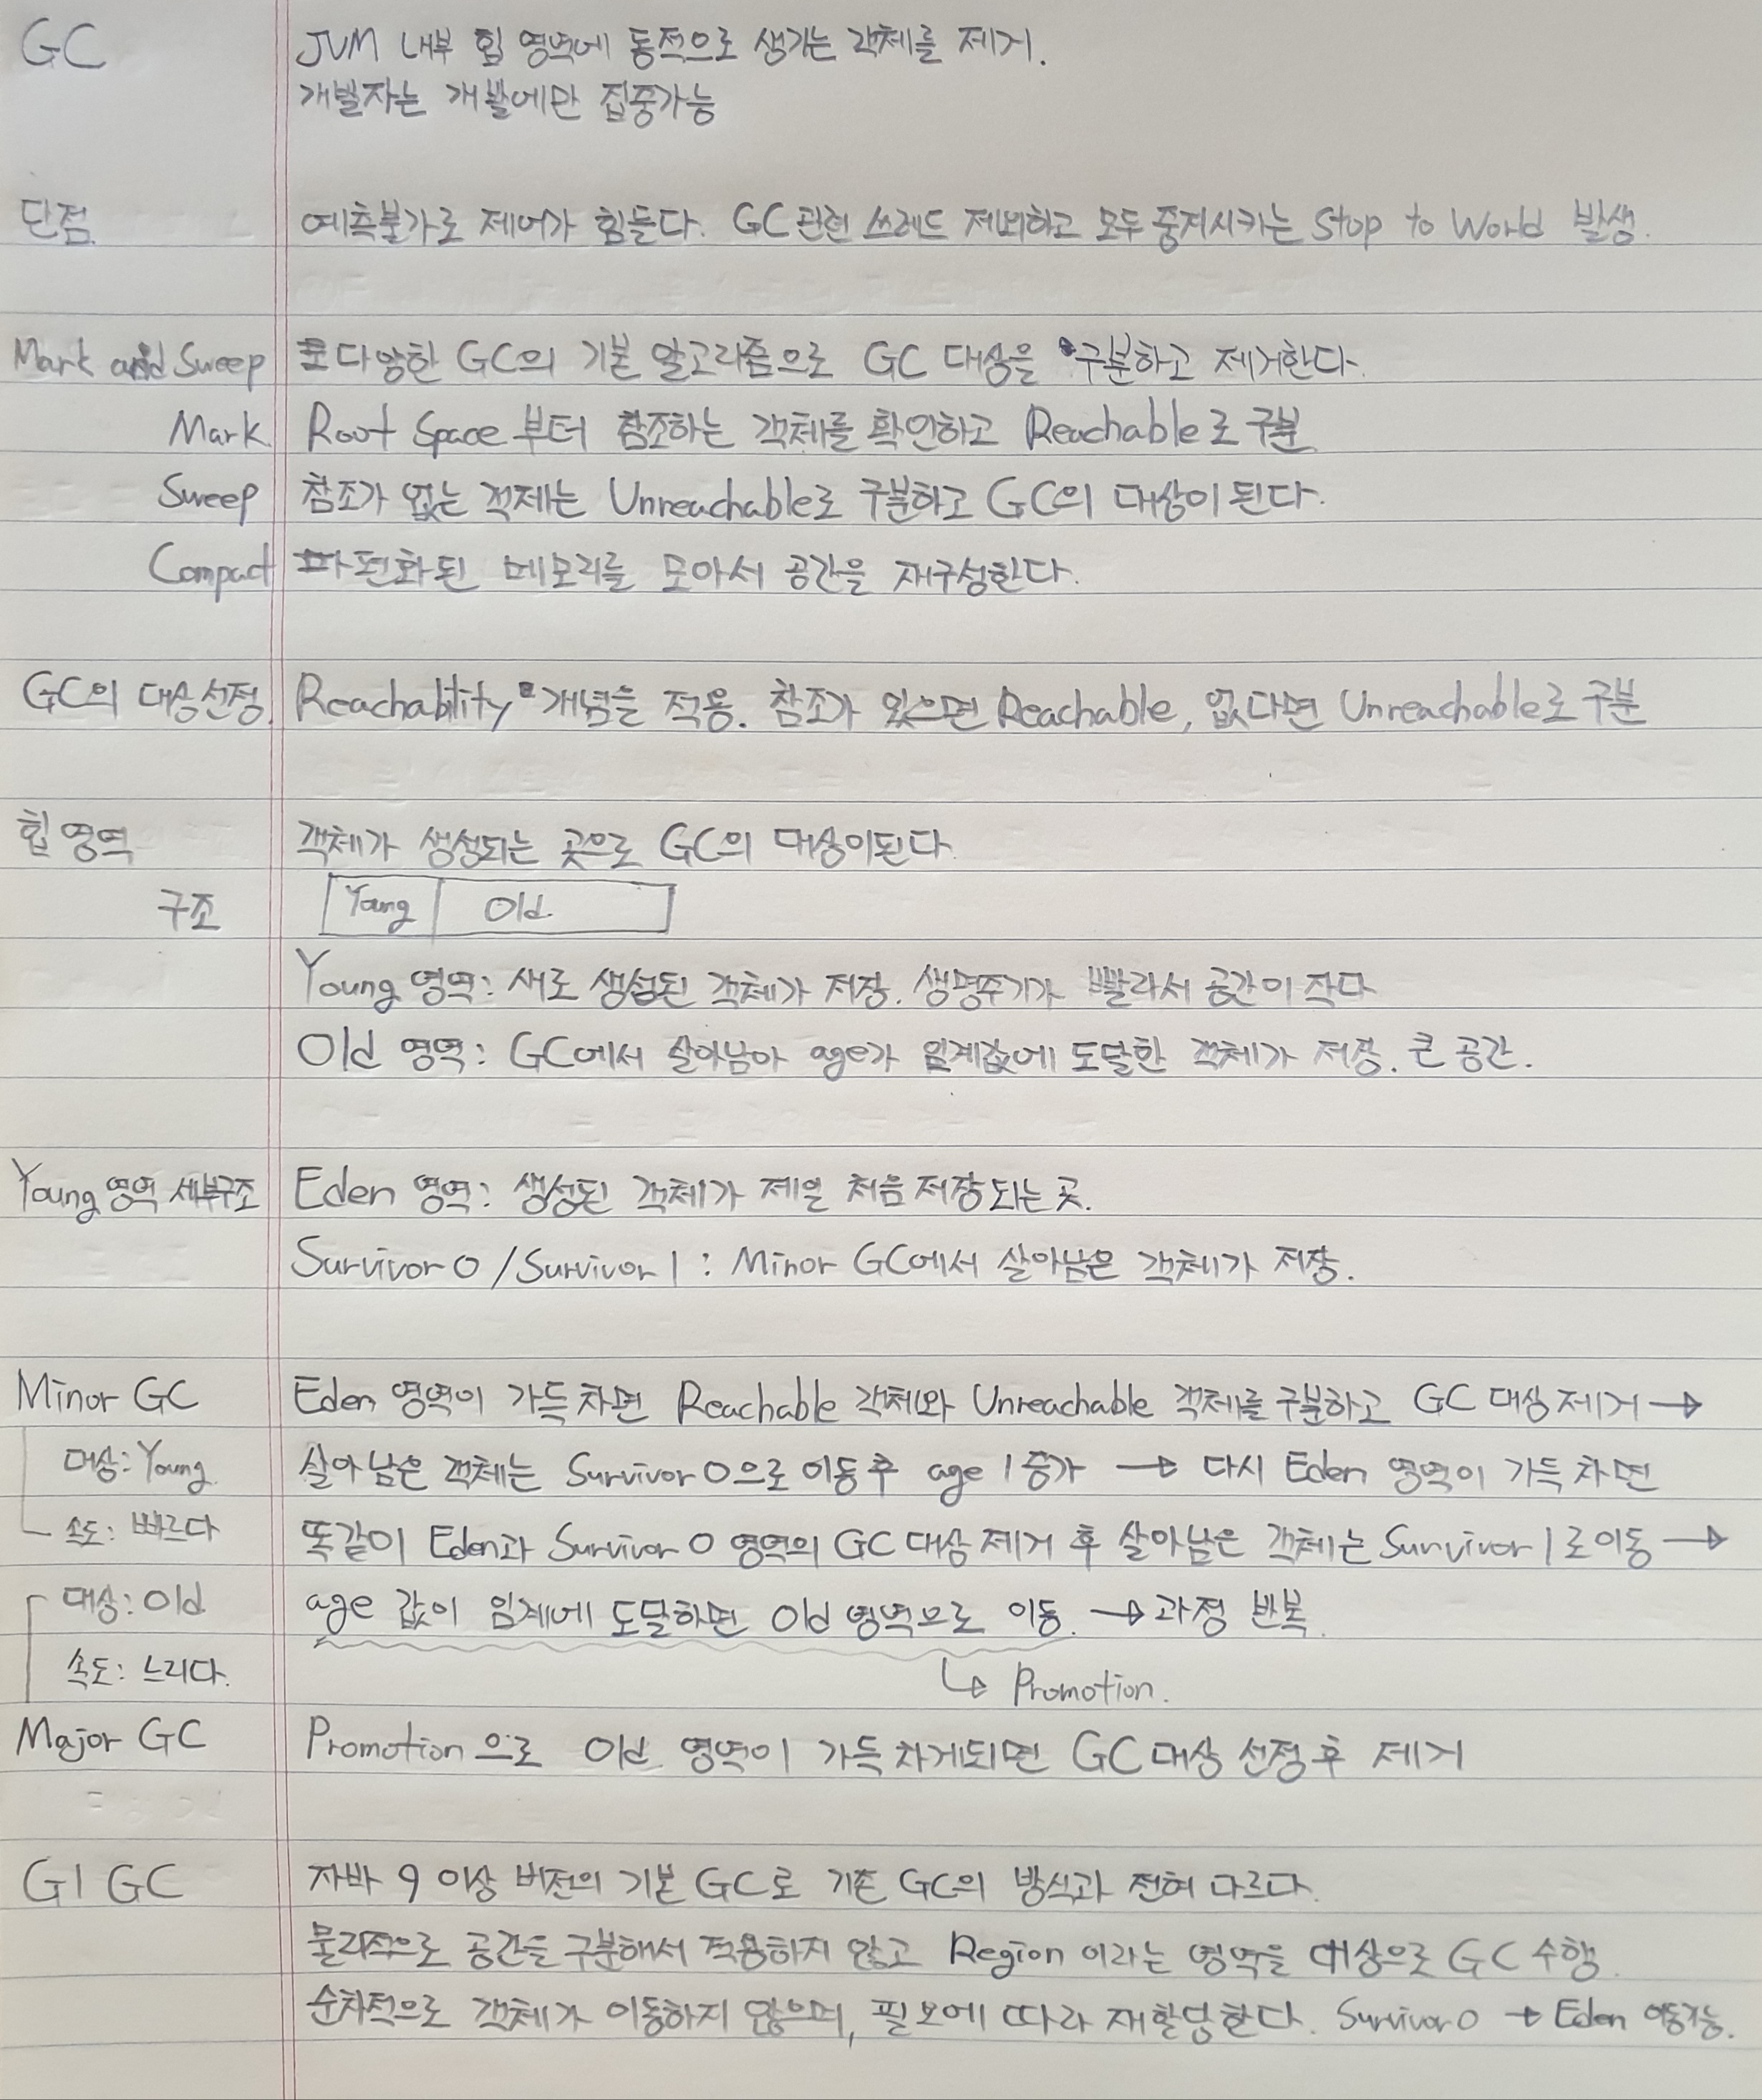 GC JVM 내부 힙 영역에 동적으로 생기는 객체를 제거.
개발자는 개발에만 집중가능
단점. 예측불가로 제어가 힘들다. GC 관련 쓰레드 제외하고 모두 중지시키는 Stop to World 발생.
Mark and Sweep 다양한 GC의 기본 알고리즘으로 GC 대상을 구분하고 제거한다.
Mark Root Space 부터 참조하는 객체를 확인하고 Reachable로 구분
Sweep 참조가 없는 객체는 Unreachable로 구분하고 GC의 대상이 된다.
Compact 파편화된 메모리를 모아서 공간을 재구성한다.
GC의 대상선정. Reachability 개념을 적용. 참조가 있으면 Reachable, 없다면 Unreachable로 구분
힙 영역 객체가 생성되는 곳으로 GC의 대상이된다.
구조 Young Old.
Young 영역: 새로 생성된 객체가 저장. 생명주기가 빨라서 공간이 작다
Old 영역: GC에서 살아남아 age가 임계값에 도달한 객체가 저장. 큰 공간.
Young 영역 세부구조 Eden 영역: 생성된 객체가 제일 처음 저장되는 곳.
Survivor 0 / Survivor 1 : Minor GC에서 살아남은 객체가 저장.
Minor GC Eden 영역이 가득차면 Reachable 객체와 Unreachable 객체를 구분하고 GC 대상 제거 →
대상: Young. 살아남은 객체는 Survivor 0으로 이동 후 age 1 증가 → 다시 Eden 영역이 가득 차면
속도: 빠르다 똑같이 Eden과 Survivor 0 영역의 GC 대상 제거 후 살아남은 객체는 Survivor 1로 이동 →
대상: Old age 값이 임계에 도달하면 Old 영역으로 이동. → 과정 반복.
속도: 느리다. ↳ Promotion.
Major GC Promotion 으로 Old 영역이 가득 차게되면 GC 대상 선정 후 제거
G1 GC 자바 9 이상 버전의 기본 GC로 기존 GC의 방식과 전혀 다르다.
물리적으로 공간을 구분해서 적용하지 않고 Region 이라는 영역을 대상으로 GC 수행.
순차적으로 객체가 이동하지 않으며, 필요에 따라 재할당한다. Survivor 0 → Eden 이동가능.